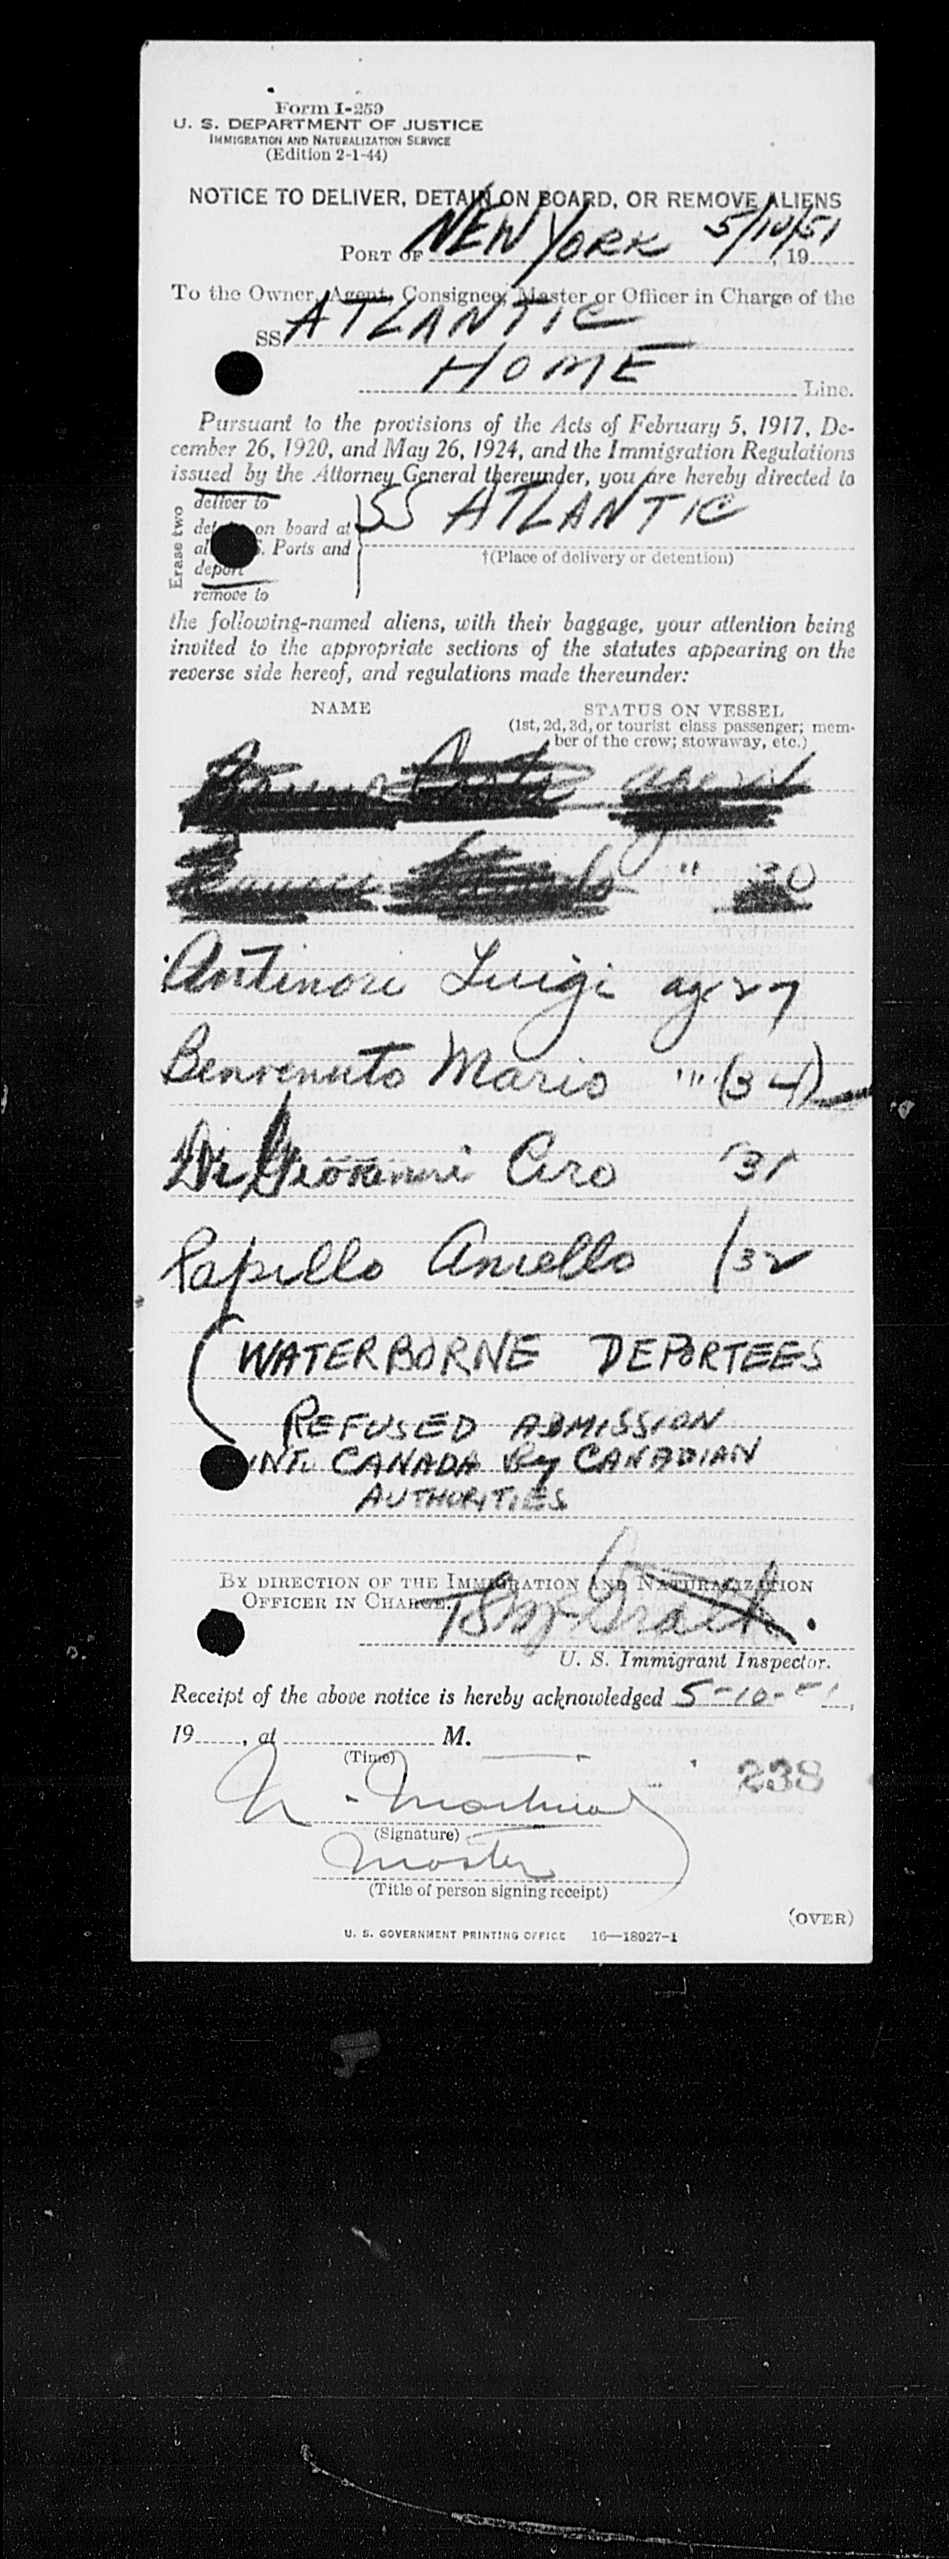 Form I-259
U. S. DEPARTMENT OF JUSTICE
IMMIGRATION AND NATURALIZATION SERVICE
(Edition 2-1-44)
NOTICE TO DELIVER, DETAIN ON BOARD, OR REMOVE ALIENS
PORT OF NEW YORK 5/10/51, 19
To the Owner, Agent, Consignee, Master or Officer in Charge of the
SS ATLANTIC
HOME Line.
Pursuant to the provisions of the Acts of February 5, 1917, De-
cember 26, 1920, and May 26, 1924, and the Immigration Regulations
issued by the Attorney General thereunder, you are hereby directed to
Erase two
deliver to
on board at
Ports and
deport
remove to
SS ATLANTIC
†(Place of delivery or detention)
the following-named aliens, with their baggage, your attention being
invited to the appropriate sections of the statutes appearing on the
reverse side hereof, and regulations made thereunder:
NAME STATUS ON VESSEL
(1st, 2d, 3d, or tourist class passenger; mem-
ber of the crew; stowaway, etc.)
" 30
Antinori Luigi age 27
Benvenuto Mario " " (34)
Di Giovanni Ciro 31
Papillo Aniello 32
WATERBORNE DEPORTEES
REFUSED ADMISSION
INTO CANADA By CANADIAN
AUTHORITIES
BY DIRECTION OF THE IMMIGRATION AND NATURALIZATION
OFFICER IN CHARGE.
U. S. Immigrant Inspector.
Receipt of the above notice is hereby acknowledged 5-10-51,
19, at M.
(Time)
238
(Signature)
Master
(Title of person signing receipt)
(OVER)
U. S. GOVERNMENT PRINTING OFFICE 16—18927-1